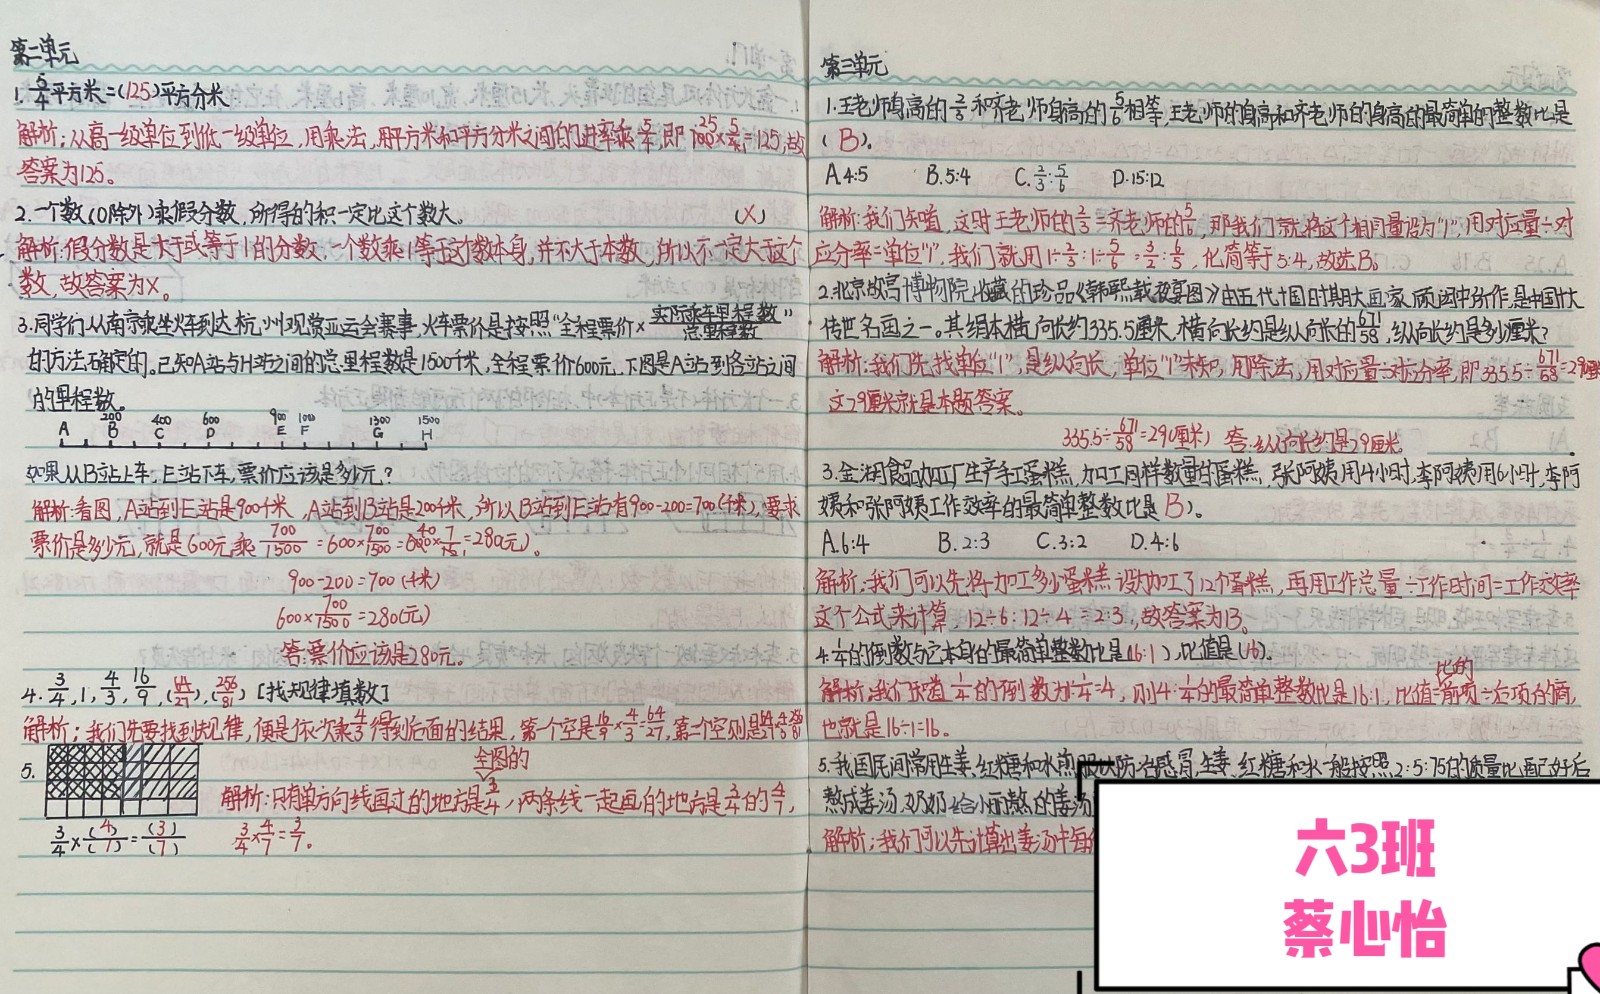 第二单元
1. 5/4平方米=(125)平方分米
解析:从高一级单位到低一级单位,用乘法,用平方米和平方分米之间的进率乘5/4,即100×5/4=125,故
答案为125。
2.一个数(0除外)乘假分数,所得的积一定比这个数大。 (×)
解析:假分数是大于或等于1的分数,一个数乘1等于这个数本身,并不大于本数,所以不一定大于这个
数,故答案为×。
3.同学们从南京乘坐火车到达杭州观赏亚运会赛事,火车票价是按照“全程票价×实际乘车里程数/总里程数”
的方法确定的。已知A站与H站之间的总里程数是1500千米,全程票价600元。下图是A站到各站之间
的里程数。
200 400 600 900 1000 1300 1500
A B C D E F G H
如果从B站上车,E站下车,票价应该是多少元?
解析:看图,A站到E站是900千米,A站到B站是200千米,所以B站到E站有900-200=700(千米),要求
票价是多少元,就是600元乘700/1500=600×700/1500=600×7/15=280(元)。
900-200=700(千米)
600×700/1500=280(元)
答:票价应该是280元。
4. 3/4,1,4/3,16/9,(64/27),(256/81) [找规律填数]
解析:我们先要找到规律,便是依次乘4/3得到后面的结果,第一个空是16/9×4/3=64/27,第二个空则是64/27×4/3=256/81
5.
全图的
解析:只有单方向线画过的地方是3/4,两条线一起画的地方是3/4的4/7,
3/4×(4)/(7)=(3)/(7) 3/4×4/7=3/7。
第三单元
1.王老师身高的2/3和齐老师身高的5/6相等,王老师的身高和齐老师的身高的最简单的整数比是
(B)。
A.4:5 B.5:4 C.2/3:5/6 D.15:12
解析:我们知道,这时王老师的2/3=齐老师的5/6,那我们就将这个相同量设为“1”,用对应量÷对
应分率=单位“1”,我们就用1÷2/3:1÷5/6=3/2:6/5,化简等于5:4,故选B。
2.北京故宫博物院收藏的珍品《韩熙载夜宴图》由五代十国时期大画家顾闳中所作,是中国十大
传世名画之一。其绢本横向长约335.5厘米,横向长约是纵向长的671/58,纵向长约是多少厘米?
解析:我们先找单位“1”,是纵向长,单位“1”未知,用除法,用对应量÷对应分率,即335.5÷671/58=29厘米
这29厘米就是本题答案。
335.5÷671/58=29(厘米) 答:纵向长约是29厘米。
3.金湖食品加工厂生产手工蛋糕,加工同样数量的蛋糕,张阿姨用4小时,李阿姨用6小时,李阿
姨和张阿姨工作效率的最简单整数比是 B)。
A.6:4 B.2:3 C.3:2 D.4:6
解析:我们可以先将加工多少蛋糕设为加工了12个蛋糕,再用工作总量÷工作时间=工作效率
这个公式来计算,12÷6:12÷4=2:3,故答案为B。
4. 1/4的倒数与它本身的最简单整数比是(16:1),比值是(16)。
比的
解析:我们知道1/4的倒数为1÷1/4=4,则4:1/4的最简单整数比是16:1,比值=前项÷后项的商,
也就是16÷1=16。
5.我国民间常用生姜、红糖和水煎服以防治感冒,生姜、红糖和水一般按照2:5:75的质量比配好后
熬成姜汤,奶奶给小丽熬的姜汤
解析:我们可以先计算出姜汤中每
六3班
蔡心怡